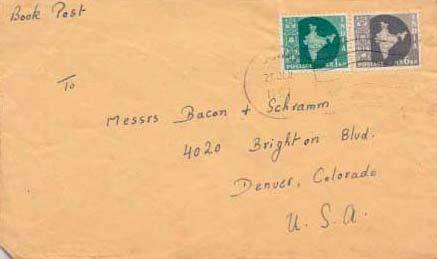 Book Post
To
Messrs Bacon + Schramm
4020 Brighton Blvd.
Denver, Colorado
U. S. A.
POSTAGE
POSTAGE